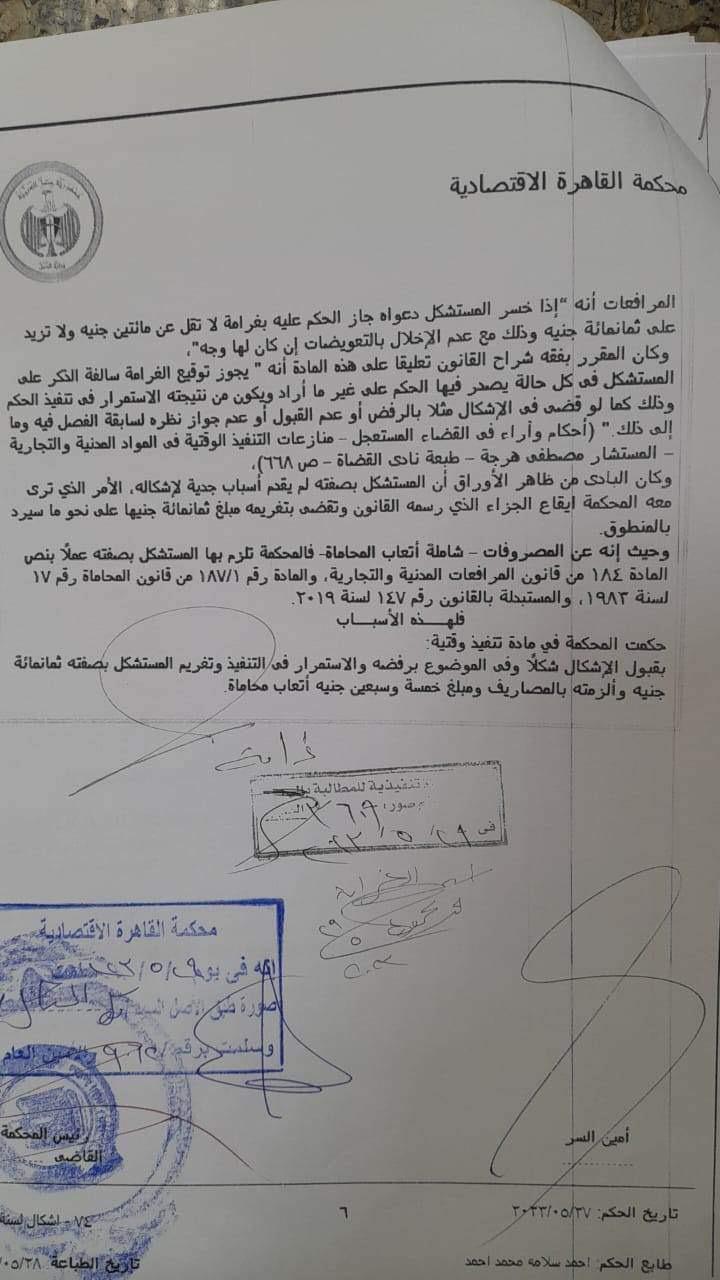 محكمة القاهرة الاقتصادية
المرافعات أنه "إذا خسر المستشكل دعواه جاز الحكم عليه بغرامة لا تقل عن مائتين جنيه ولا تزيد
على ثمانمائة جنيه وذلك مع عدم الإخلال بالتعويضات إن كان لها وجه"،
وكان المقرر بفقه شراح القانون تعليقا على هذه المادة أنه " يجوز توقيع الغرامة سالفة الذكر على
المستشكل فى كل حالة يصدر فيها الحكم على غير ما أراد ويكون من نتيجته الاستمرار فى تنفيذ الحكم
وذلك كما لو قضى فى الإشكال مثلا بالرفض أو عدم القبول أو عدم جواز نظره لسابقة الفصل فيه وما
إلى ذلك." (أحكام وآراء فى القضاء المستعجل – منازعات التنفيذ الوقتية فى المواد المدنية والتجارية
– المستشار مصطفى هرجة – طبعة نادى القضاة – ص ٦٦٨)،
وكان البادى من ظاهر الأوراق أن المستشكل بصفته لم يقدم أسباب جدية لإشكاله، الأمر الذي ترى
معه المحكمة ايقاع الجزاء الذي رسمه القانون وتقضى بتغريمه مبلغ ثمانمائة جنيها على نحو ما سيرد
بالمنطوق.
وحيث إنه عن المصروفات – شاملة أتعاب المحاماة- فالمحكمة تلزم بها المستشكل بصفته عملًا بنص
المادة ١٨٤ من قانون المرافعات المدنية والتجارية، والمادة رقم ١٨٧/١ من قانون المحاماة رقم ١٧
لسنة ١٩٨٣، والمستبدلة بالقانون رقم ١٤٧ لسنة ٢٠١٩.
فلهـــذه الأسبـــاب
حكمت المحكمة في مادة تنفيذ وقتية:
بقبول الإشكال شكلًا وفى الموضوع برفضه والاستمرار فى التنفيذ وتغريم المستشكل بصفته ثمانمائة
جنيه وألزمته بالمصاريف ومبلغ خمسة وسبعين جنيه أتعاب محاماة.
غرامة
تنفيذية للمطالبة
صور
فى ٢٩/٥/٢٣
محكمة القاهرة الاقتصادية
انه فى يوم ٢٣/٥/٢٩
صورة طبق الاصل
وسلمت برقم
الأمين العام
رئيس المحكمة
أمين السر
القاضى
تاريخ الحكم: ٢٠٢٣/٠٥/٢٧
٦
٧٤ - اشكال لسنة
طابع الحكم: احمد سلامه محمد احمد
تاريخ الطباعة: ٠٥/٢٨/